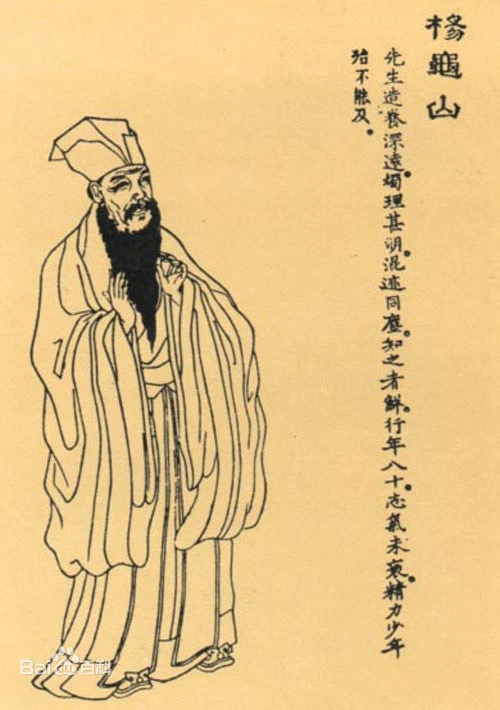 楊龜山
先生造養深遠。燭理甚明。混迹同塵。知之者鮮。行年八十。志氣未衰。精力少年
殆不能及。
Bai百科